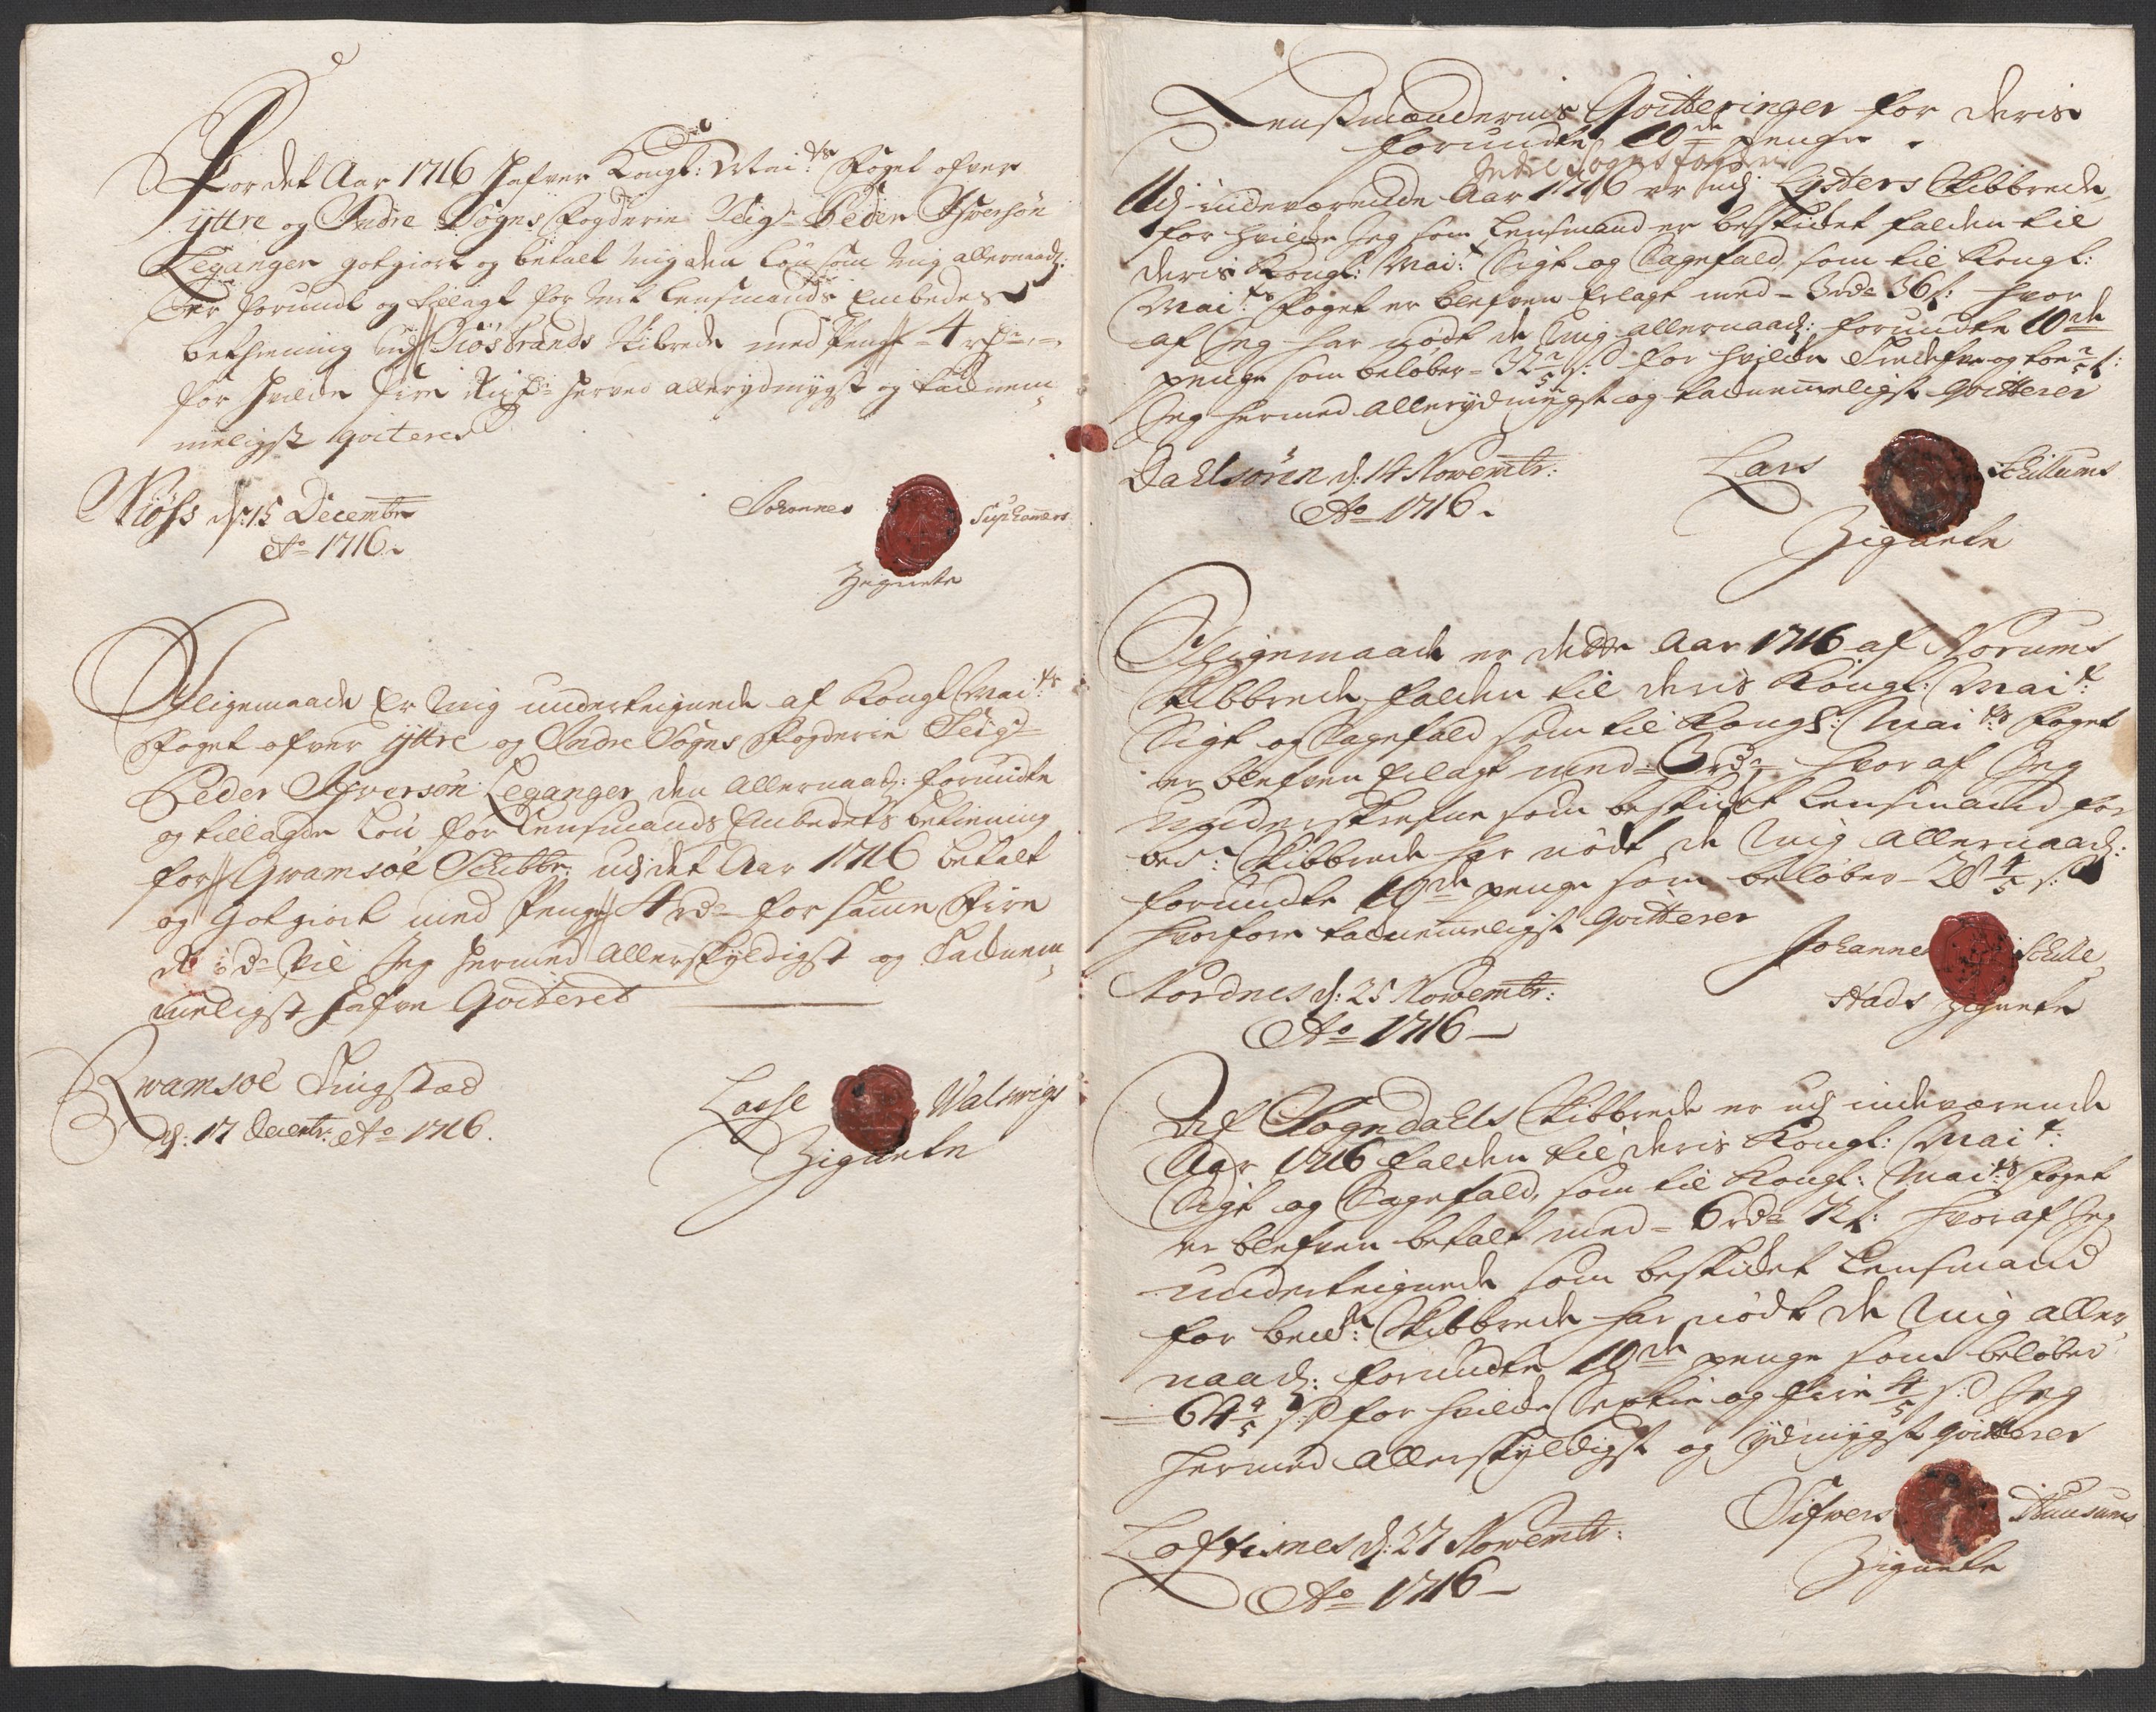 For det Aar 1716 Hafver Kongl: Mai:ts Foget ofver
ÿttre og Indre Sogns Fogderie Seigr Peder Ifversøn
Leganger gotgiort og betalt mig den Løn som mig allernaad:
er forundt og tillagt for mit Lensmands Embedes
betiening udj Siøstrands Skibrede med Penge - 4 rdr -
for hvilde fire Rixdr herved allerydmygst og tacknem,
meligst qviteres
Niøss d: 15 Decembr
Ao 1716.
Johannes
Zignete
Iligemaade Er mig underteignede af Kongl Mai:ts
Foget ofver ÿttre og Indre Sogns Fogderie Seigr
Peder Ifversøn Leganger den allernaad: forundte
og tillagde Løn for Lensmands Embedets betiening
for Qvamsøe Schibbr: udj det Aar 1716 betalt
og Gotgiort med Penge 4 rdr for samme Fire
Rdr vil Jeg hermed allerskyldigst og Tacknem,
meligst hafve Qviteret
Qwamsøe Tingstad
d: 17 decembr: Ao 1716.
Lasse Walswigs
Zignete
Lensmændernis Qvitteringer for deris
forundte 10de penge.
Indre Sogns fogderie
Udj indeværende Aar 1716 er udj Lysters Skibbrede
for hvilde Jeg som Lensmand er beskicket falden til
deris Kongl: Mai:t Sigt og Sagefald, som til Kongl:
Mai:ts Foget er blefven Erlagt med - 3 rdr 36 s: hvor
af Jeg har nødt de mig allernaad: forundte 10de
penge som beløber - 32 2/5 s: for hvilde Tredifve og toe 2/5 s:
Jeg hermed allerydmygst og tacknemmeligst Qvitterer
Dahlsøren d: 14 Novembr:
Ao 1716.
Lars
Zignete
Iligemaade er dette Aar 1716 af Norums
Skibbrede falden til deris Kongl: Mai:t
Sigt og Sagefald som til Kongl: Mai:ts Foget
er blefven Erlagt med - 3 rdr - hvor af Jeg
underskrefne som beskicket Lensmand for
bete: Skibbrede har nødt de mig Allernaad:
forundte 10de penge som beløber - 28 4/5 s:
hvorfore tacknemmeligst Qvitterer
Nordnes d: 25 Novembr:
Ao 1716 -
Johannes Schille
stads Zignete
Af Sogndahls Skibbrede er udj indeværende
Aar 1716 falden til deris Kongl: Mai:t
Sigt og Sagefald, som til Kongl: Mai:ts Foget
er blefven betalt med - 6 rdr 72 s: hvoraf Jeg
underteignede som beskicket Lensmand
for bete: Skibbrede har nødt de mig aller,
naad: forundte 10de penge som beløber
- 64 4/5 s: for hvilde Sextie og fire 4/5 s: Jeg
hermed Allerskyldigst og ydmygst qvitterer
Loftisnes d: 27 Novembr:
Ao 1716 -
Sifvers
Zignete